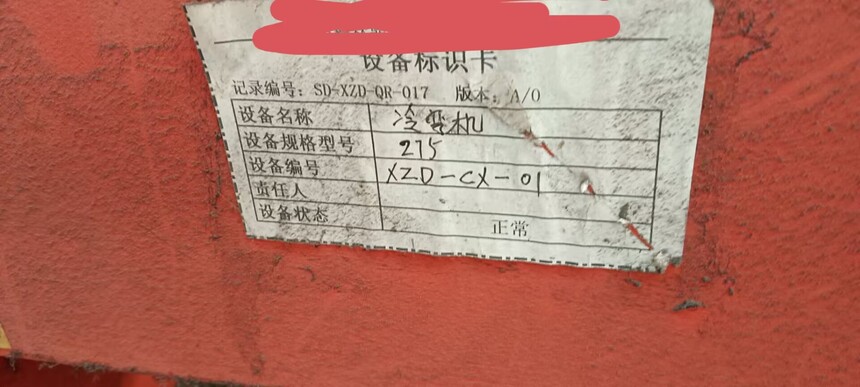 设备标识卡
记录编号：SD-XZD-QR-017 版本：A/0
设备名称 冷弯机
设备规格型号 275
设备编号 XZD-CX-01
责任人
设备状态 正常